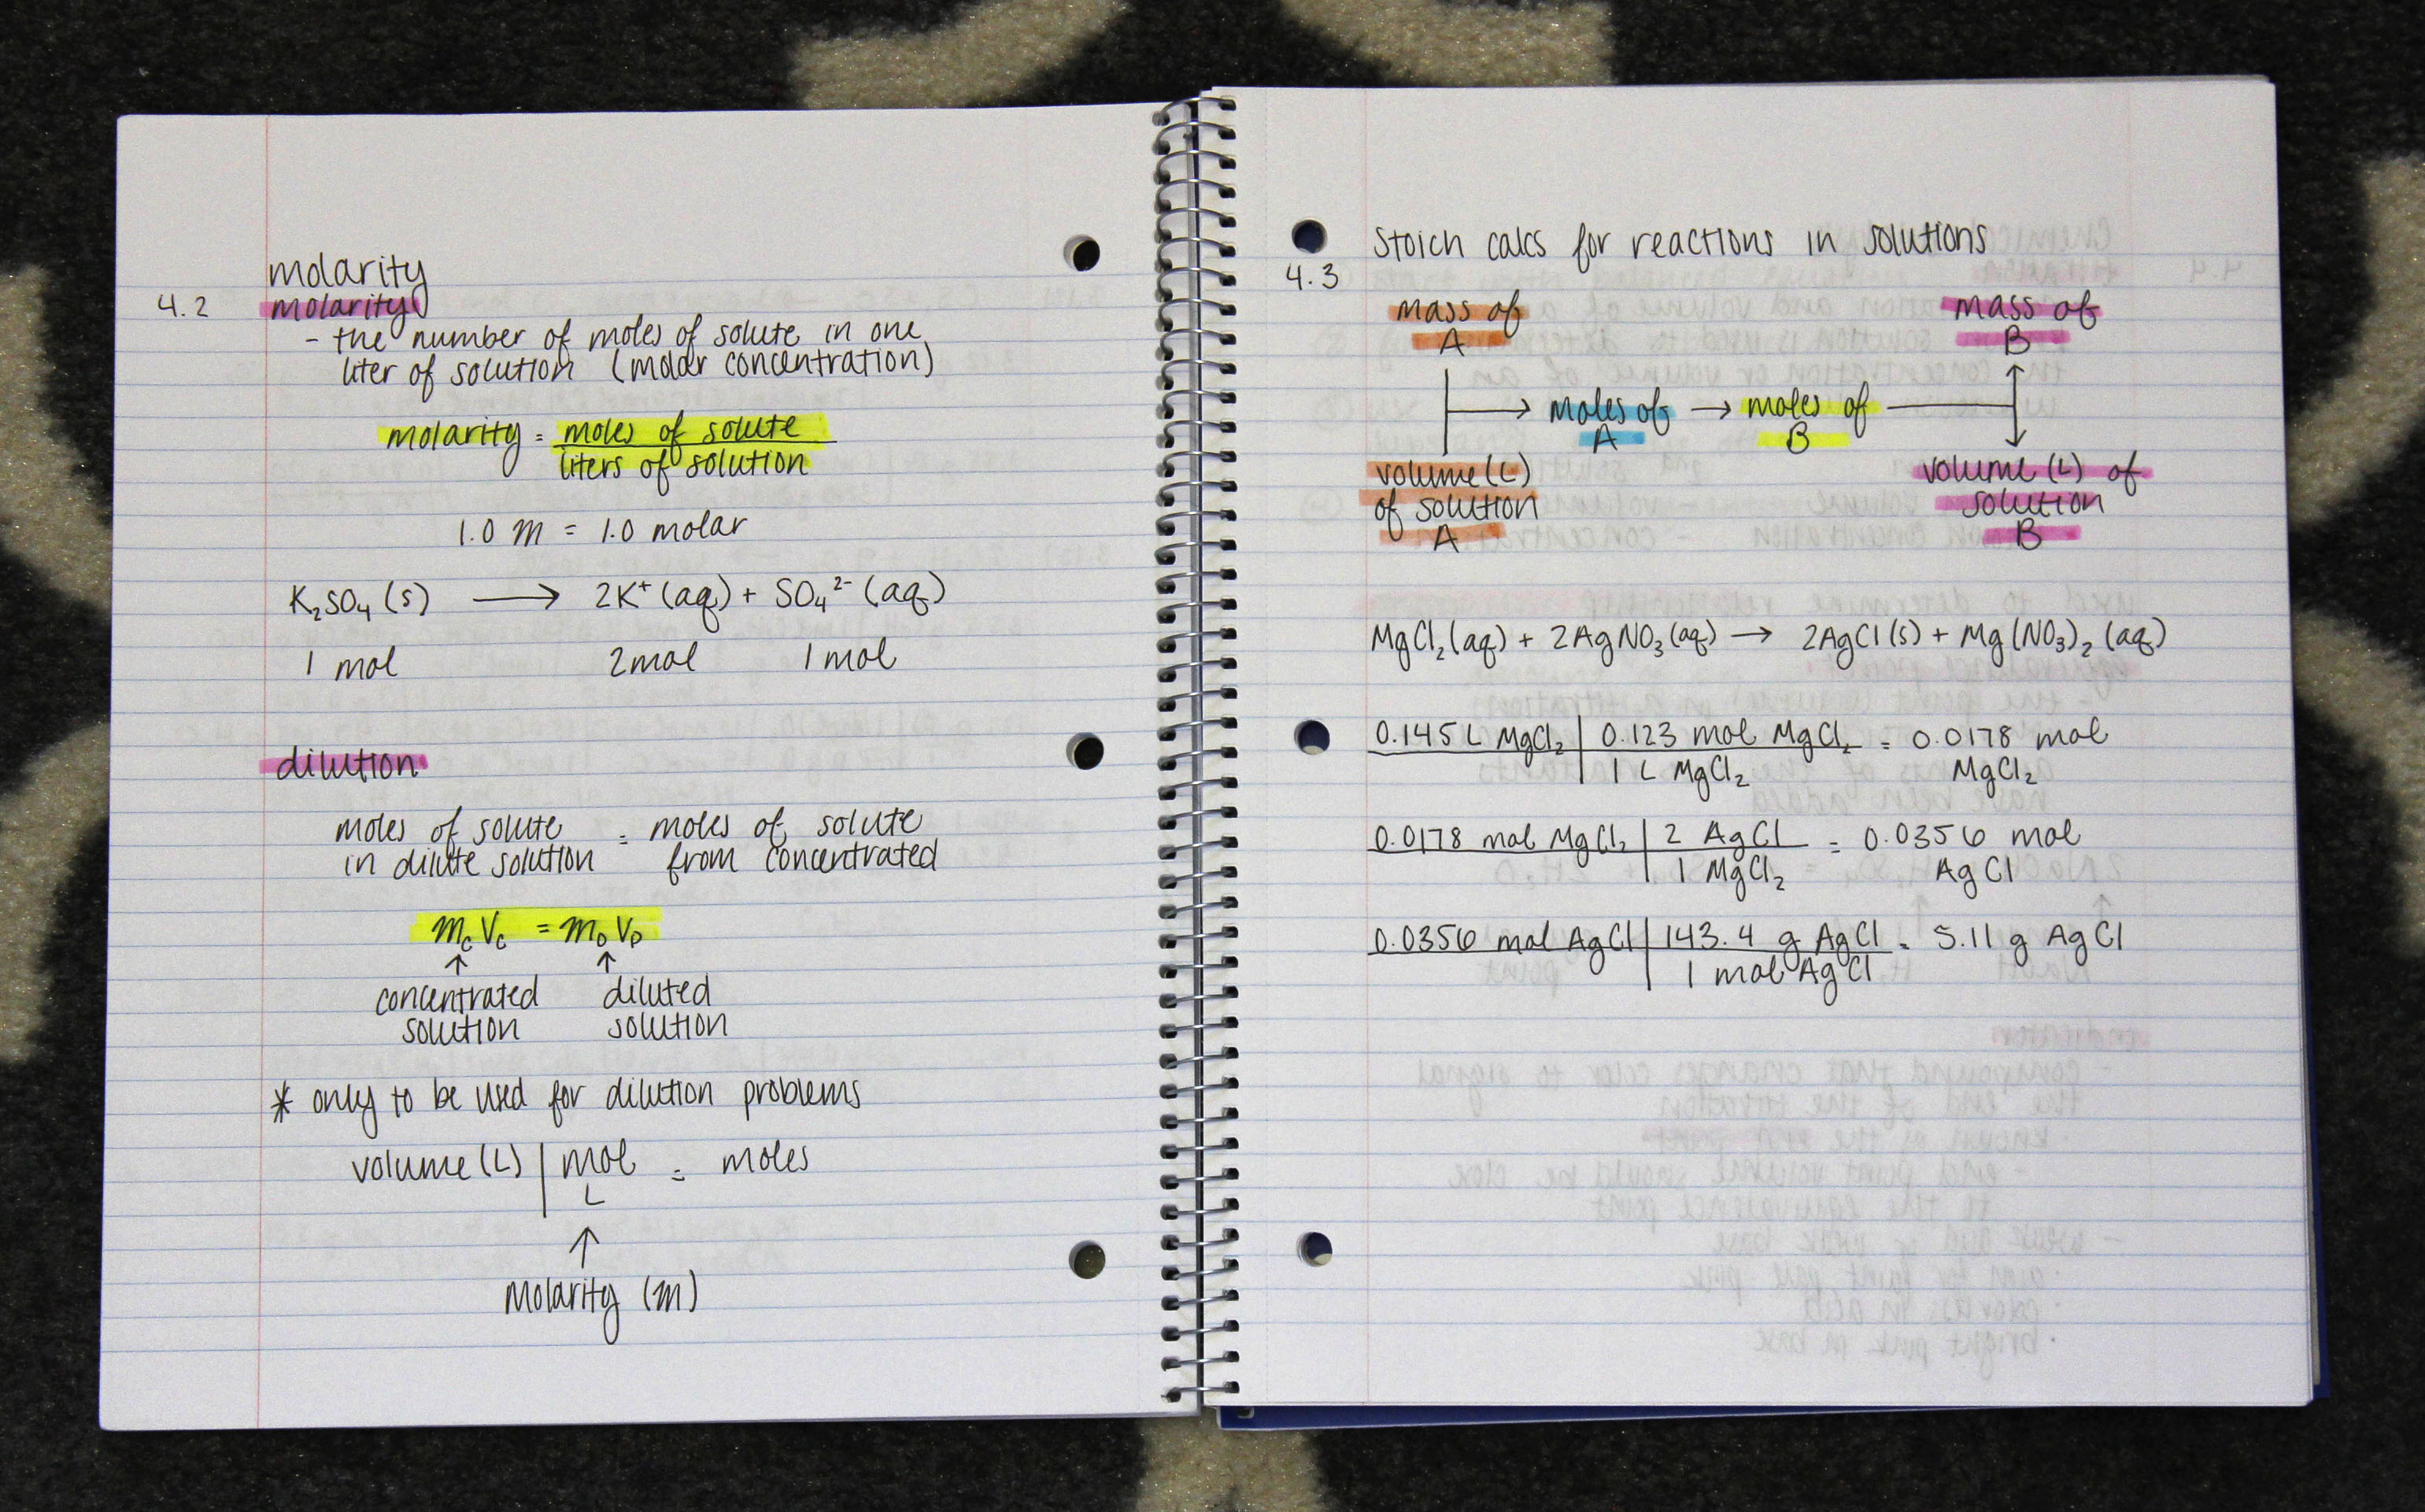 molarity
4.2 molarity
- the number of moles of solute in one
liter of solution (molar concentration)
molarity = moles of solute
liters of solution
1.0 M = 1.0 molar
K₂SO₄ (s) → 2K⁺ (aq) + SO₄²⁻ (aq)
1 mol 2mol 1 mol
dilution
moles of solute = moles of solute
in dilute solution from concentrated
McVc = MDVD
↑ ↑
concentrated diluted
solution solution
* only to be used for dilution problems
volume (L) | mol = moles
L
↑
Molarity (M)
Stoich calcs for reactions in solutions
4.3
mass of mass of
A B
→ moles of → moles of
A B
volume (L) volume (L) of
of solution solution
A B
MgCl₂ (aq) + 2AgNO₃ (aq) → 2AgCl (s) + Mg(NO₃)₂ (aq)
0.145 L MgCl₂ | 0.123 mol MgCl₂ = 0.0178 mol
1 L MgCl₂ MgCl₂
0.0178 mol MgCl₂ | 2 AgCl = 0.0356 mol
1 MgCl₂ AgCl
0.0356 mol AgCl | 143.4 g AgCl = 5.11 g AgCl
1 mol AgCl